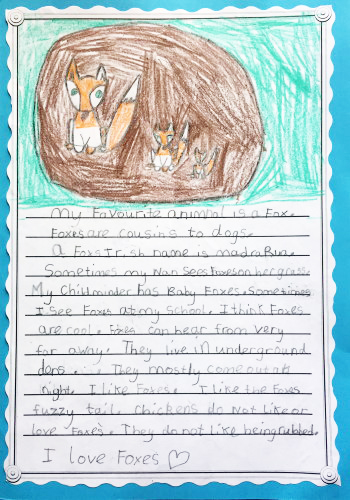 My Favourite animal is a Fox.
Foxes are cousins to dogs.
A Foxs Irish name is madra Rua.
Sometimes my Nan Sees Foxes on her grass.
My Childminder has Baby Foxes. Sometimes
I see Foxes at my school. I think Foxes
are cool. Foxes can hear from very
far away. They live in underground
dens. They mostly come out at
night. I like Foxes. I like the Foxes
fuzzy tail. Chickens do not like or
love Foxes. They do not like being rubbed.
I love Foxes ♡